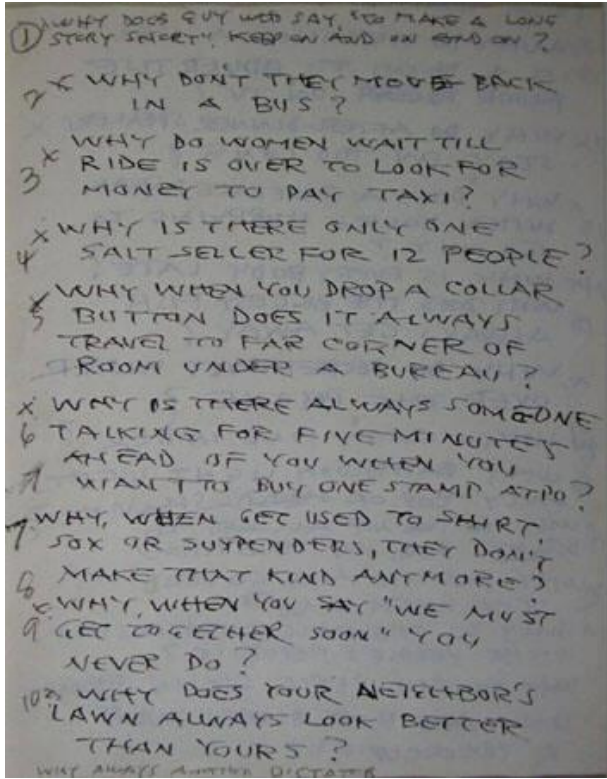 ① x WHY DOES GUY WHO SAY, "TO MAKE A LONG
STORY SHORT", KEEP ON AND ON AND ON?
2 x WHY DON'T THEY MOVE BACK
IN A BUS?
x WHY DO WOMEN WAIT TILL
3 RIDE IS OVER TO LOOK FOR
MONEY TO PAY TAXI?
x WHY IS THERE ONLY ONE
4 SALT SELLER FOR 12 PEOPLE?
x WHY WHEN YOU DROP A COLLAR
5 BUTTON DOES IT ALWAYS
TRAVEL TO FAR CORNER OF
ROOM UNDER A BUREAU?
x WHY IS THERE ALWAYS SOMEONE
6 TALKING FOR FIVE MINUTES
AHEAD OF YOU WHEN YOU
7 WANT TO BUY ONE STAMP AT PO?
7 WHY, WHEN GET USED TO SHIRT,
SOX OR SUSPENDERS, THEY DON'T
8 MAKE THAT KIND ANYMORE?
x WHY, WHEN YOU SAY "WE MUST
9 GET TOGETHER SOON" YOU
NEVER DO?
10 x WHY DOES YOUR NEIGHBOR'S
LAWN ALWAYS LOOK BETTER
THAN YOURS?
WHY ALWAYS ANOTHER DICTATER